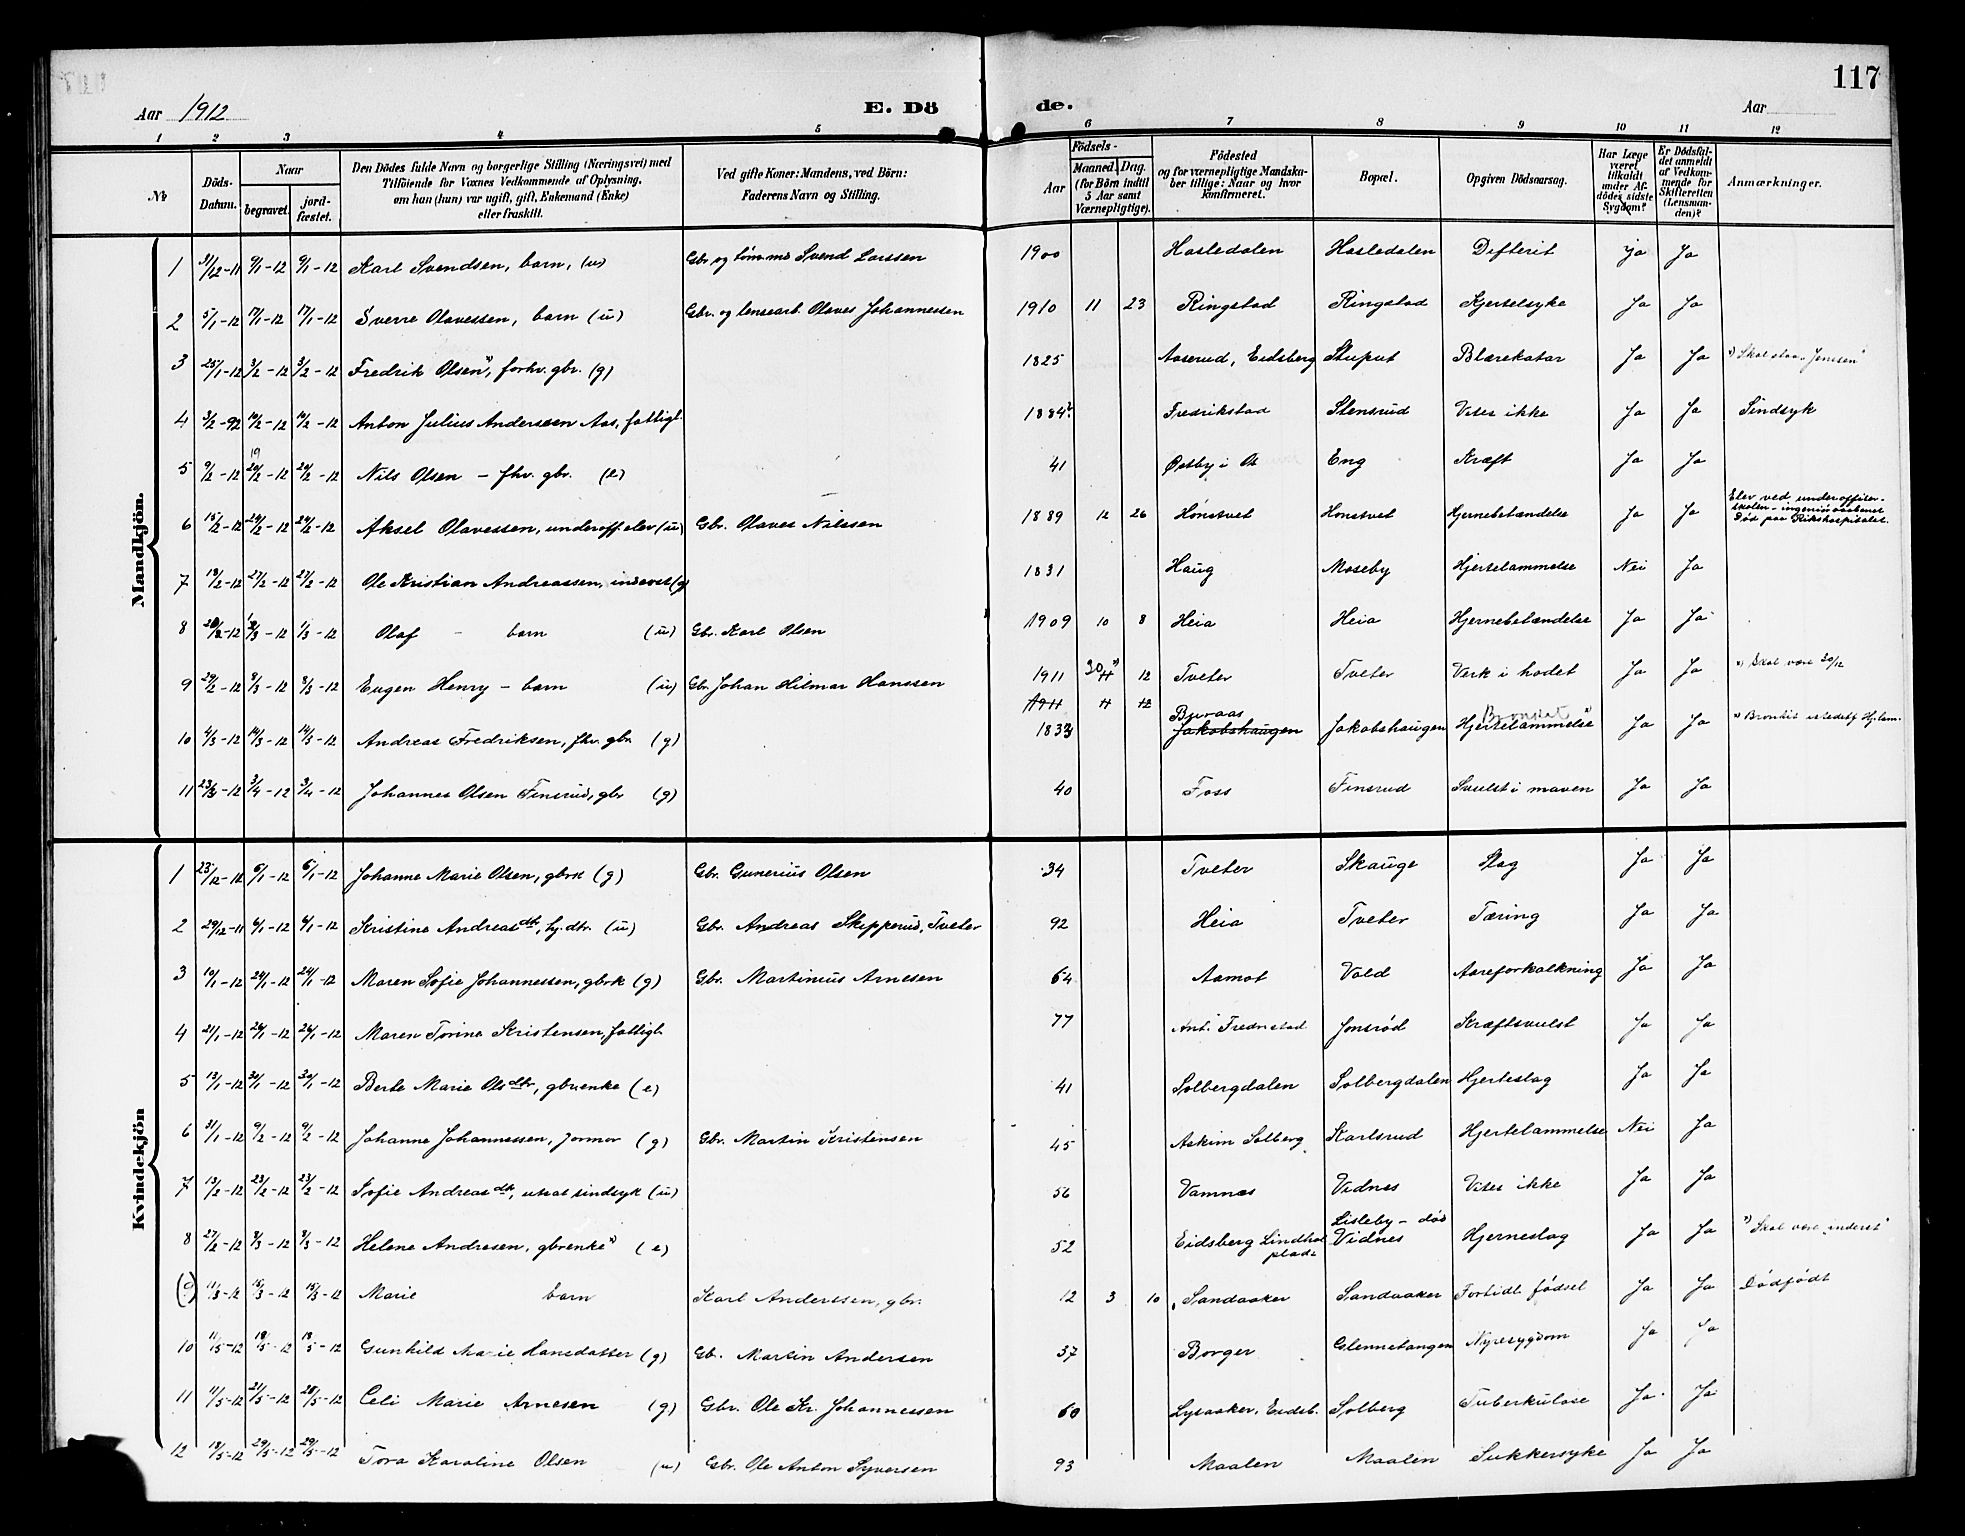 117
Aar 1912
E. Dö
de.
Aar
1 2 3 4 5 6 7 8 9 10 11 12
№
Döds-Datum.
Naar
begravet.
jord-fæstet.
Den Dödes fulde Navn og borgerlige Stilling (Næringsvei) med
Tilföiende for Voxnes Vedkommende af Oplysning,
om han (hun) var ugift, gift, Enkemand (Enke)
eller fraskilt.
Ved gifte Koner: Mandens, ved Börn:
Faderens Navn og Stilling.
Födsels-
Aar
Maaned. Dag.
(for Börn indtil
5 Aar samt
Værnepligtige).
Födested
og for værnepligtige Mandska-
ber tillige: Naar og hvor
konfirmeret.
Bopæl.
Opgiven Dödsaarsag.
Har Læge
været
tilkaldt
under Af-
dödes sidste
Sygdom?
Er Dödsfal-
det anmeldt
af Vedkom-
mende for
Skifteretten
(Lensman-
den)?
Anmærkninger.
Mandkjön.
1 31/12-11 9/1-12 9/1-12 Karl Svendsen, barn, (u) Gbr og tømm Svend Larssen 1900 Hasledalen Hasledalen Difterit Ja Ja
2 5/1-12 17/1-12 17/1-12 Sverre Olavessen, barn (u) Gbr. og lensearb. Olaves Johannessen 1910 11 23 Ringstad Ringstad Kjertelsyke Ja Ja
3 25/1-12 3/2-12 3/2-12 Fredrik Olsen", forhv. gbr. (g) 1825 Aaserud, Eidsberg Stuput Blærekatar Ja Ja ") Skal staa "Jensen"
4 3/2-92 10/2-12 10/2-12 Anton Julius Anderssen Aas, fattigl. 1884 Fredrikstad Stensrud Vites ikke Ja Ja Sindsyk
5 9/2-12 19 20/2-12 20/2-12 Nils Olsen - fhv. gbr. (e) 41 Østby i Os Eng Kræft Ja Ja
6 15/2-12 24/2-12 24/2-12 Aksel Olavessen, underoff elev (u) Gbr. Olaves Nilssen 1889 12 26 Honstvet Honstvet Hjernebetændelse Ja Ja Elev ved underofficer-
skolen - ingeniørvaabenet
Død paa Rikshospitalet.
7 18/2-12 27/2-12 27/2-12 Ole Kristian Andreassen, inderst (g) 1831 Haug Moseby Hjertelammelse Nei Ja
8 20/2-12 1/3-12 1/3-12 Olaf - barn (u) Gbr. Karl Olsen 1909 10 8 Heia Heia Hjernebetændelse Ja Ja
9 29/2-12 8/3-12 8/3-12 Eugen Henry - barn (u) Gbr. Johan Hilmar Hanssen 1911 30/11 ") 12 Tveter Tveter Verk i hodet Ja Ja ") Skal være 30/12
1911 11 12
10 4/3-12 14/3-12 14/3-12 Andreas Fredriksen, fhv. gbr. (g) 1833 Bjeraas Jakobshaugen Jakobshaugen Bronkit Hjertelammelse" Ja Ja ") Bronkit istedetf Hj.lam.
11 23/3-12 3/4-12 3/4-12 Johannes Olsen Finsrud, gbr (g) 40 Foss Finsrud Svulst i maven Ja Ja
Kvindekjön
1 23/12-12 6/1-12 6/1-12 Johanne Marie Olsen, gbrk (g) Gbr. Gunerius Olsen 34 Tveter Skauge Slag Ja Ja
2 29/12-11 6/1-12 6/1-12 Kristine Andreasdtr, hj. dtr. (u) Gbr. Andreas Skipperud, Tveter 92 Heia Tveter Tæring Ja Ja
3 10/1-12 24/1-12 24/1-12 Maren Sofie Johannessen, gbrk (g) Gbr. Martinius Arnesen 64 Aamot Vold Aareforkalkning Ja Ja
4 21/1-12 26/1-12 26/1-12 Maren Torine Kristensen, fattigl. 77 Ant. Fredrstad Jonsrød Kræftsvulst Ja Ja
5 13/1-12 30/1-12 30/1-12 Berte Marie Olsdtr, gbrenke (e) 41 Solbergdalen Solbergdalen Hjerteslag Ja Ja
6 31/1-12 9/2-12 9/2-12 Johanne Johannessen, jormor (g) Gbr. Martin Kristensen 45 Askim Solberg Karlsrud Hjertelammelse Nei Ja
7 13/2-12 23/2-12 23/2-12 Sofie Andreasdtr, utsat sindsyk (u) 56 Vamnæs Vidnes Vites ikke Ja Ja
8 27/2-12 8/3-12 8/3-12 Helene Andresen, gbrenke") (e) 52 Eidsberg Lindhol
plads Lisleby - død
Vidnes Hjerneslag Ja Ja ") Skal være "inderst"
(9) 11/3-12 15/3-12 15/3-12 Marie barn Karl Anderssen, gbr. 12 3 10 Sandaaker Sandaaker Fortidl. fødsel Ja Ja Dødfødt
10 11/5-12 18/5-12 18/5-12 Gunhild Marie Hansdatter (g) Gb. Martin Andersen 37 Borger Glennetangen Nyresygdom Ja Ja
11 11/5-12 21/5-12 28/5-12 Celi Marie Arnesen (g) Gbr. Ole Kr. Johannessen 60 Lysaaker, Eidsb. Solberg Tuberkulose Ja Ja
12 18/5-12 29/5-12 29/5-12 Tora Karoline Olsen (u) Gbr. Ole Anton Syversen 93 Maalen Maalen Sukkersyke Ja Ja